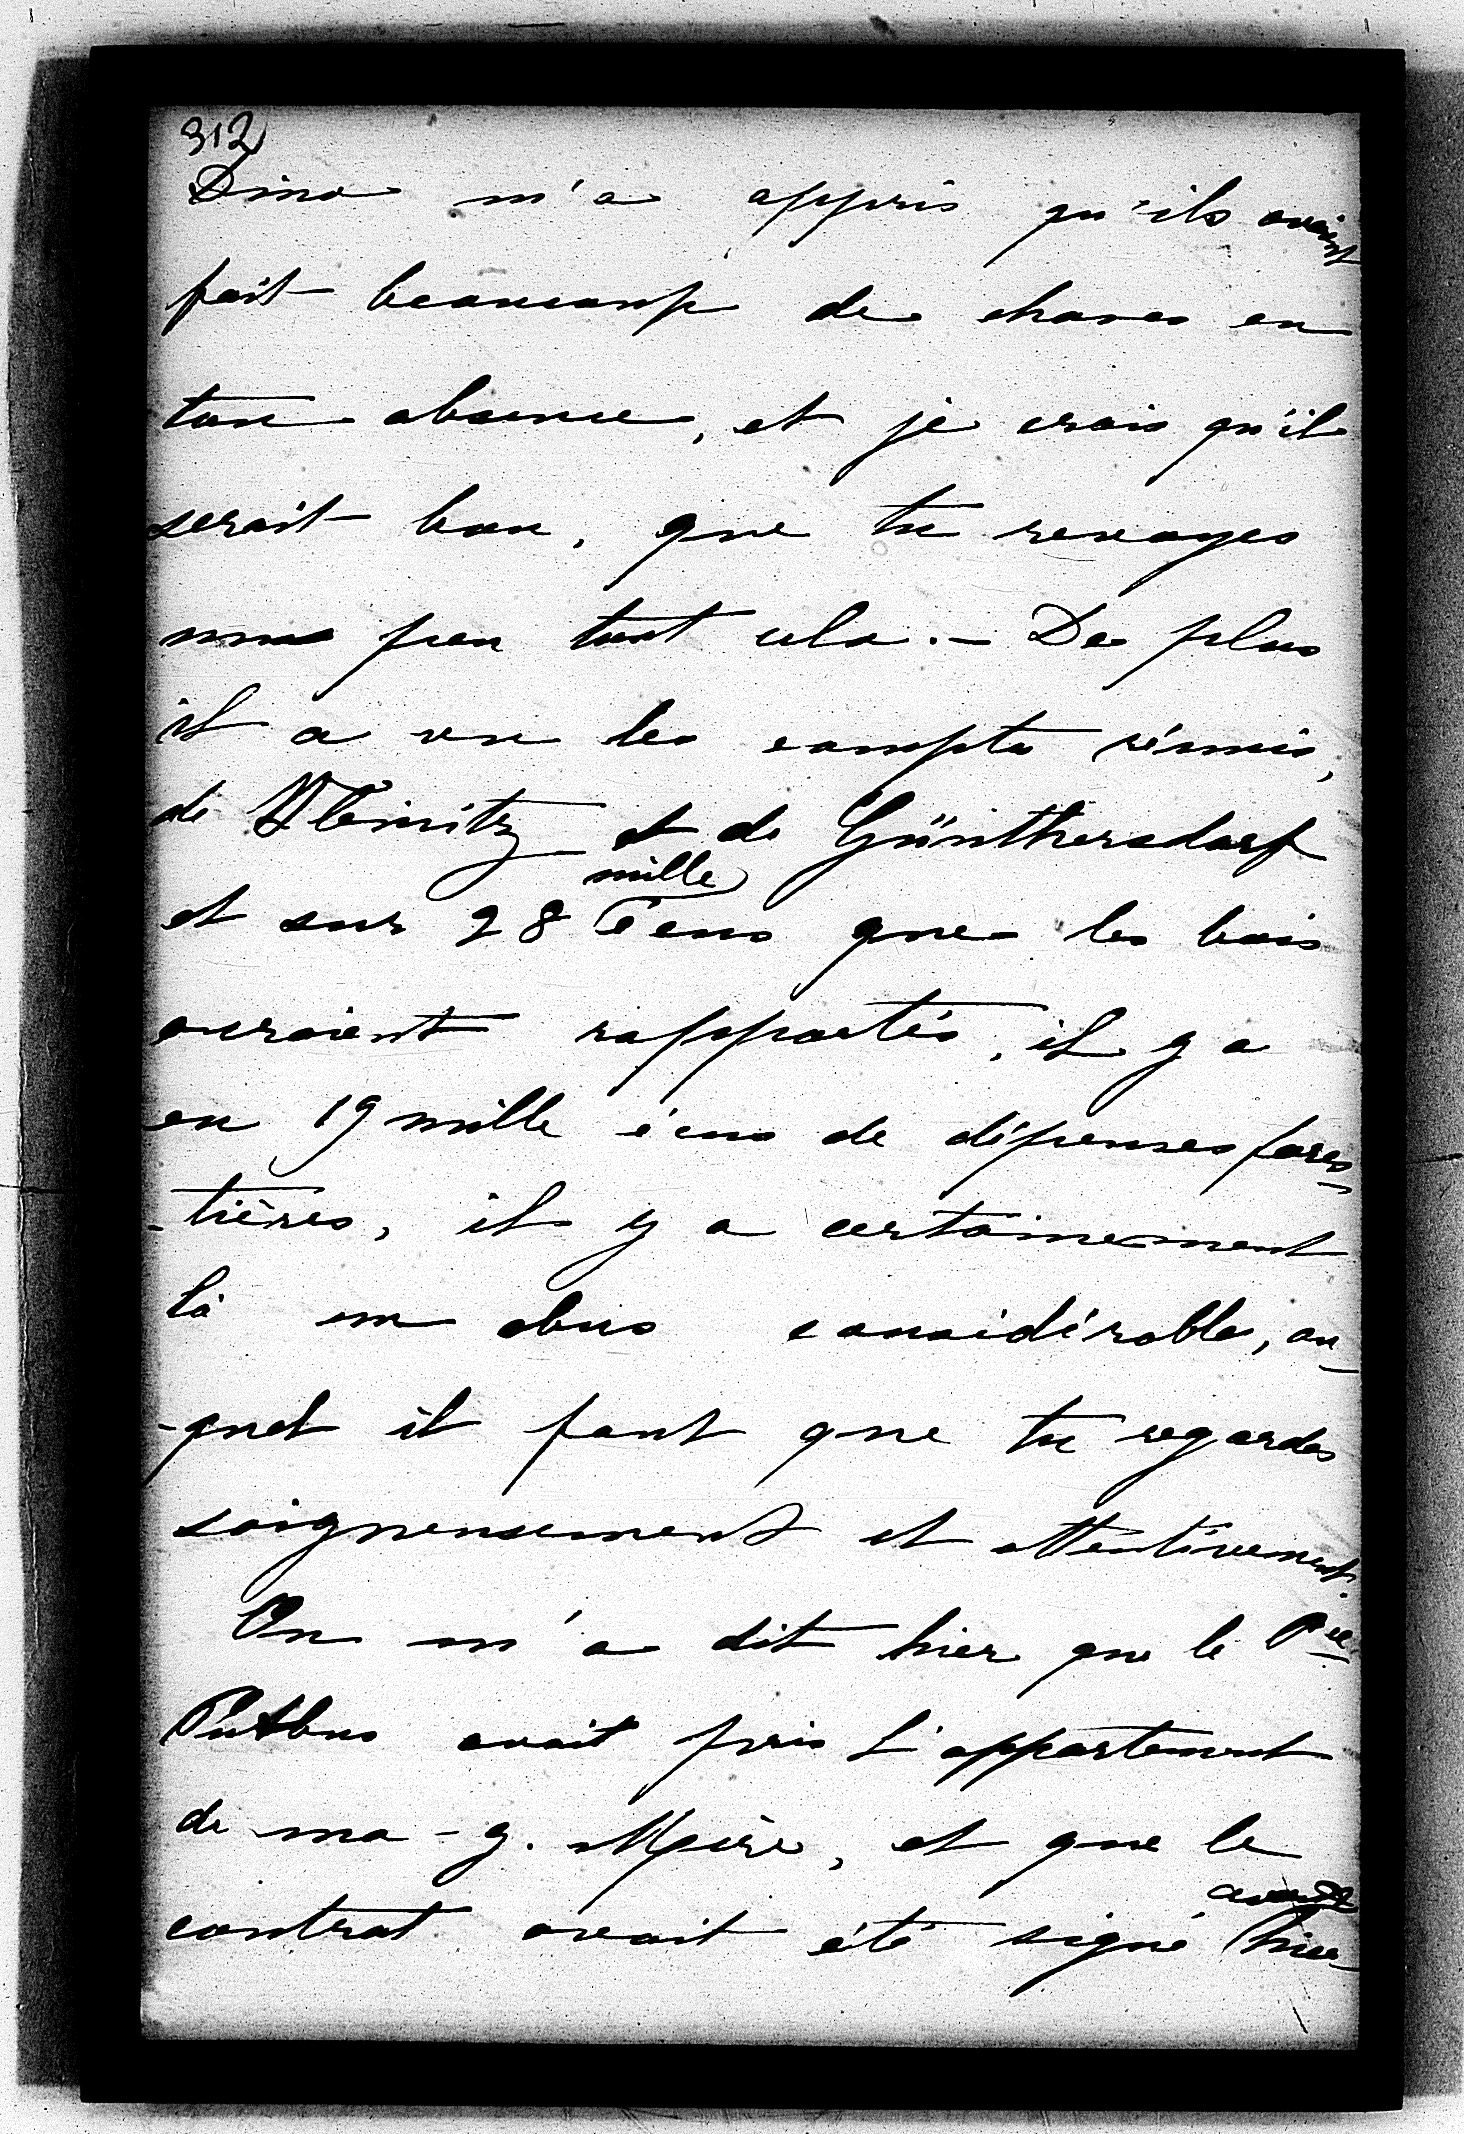 312
Dino m'a appris qu'ils avaient
fait beaucoup de choses en
ton absence, et je crois qu'il
serait bon, que tu revoyes
un peu tout cela. – De plus
il a vu les compte réunis,
de Kleinitz et de Günthersdorf
mille
et sur 28 écus que les bois
auraient rapportés, il y a
eu 19 mille écus de dépenses fores-
-tières, il y a certainement
là un abus considérable, au-
-quel il faut que tu regardes
soigneusement et attentivement.
On m'a dit hier que le Pce
Putbus avait pris l'appartement
de ma - g. Mère, et que le
avant
contrat avait été signé hier